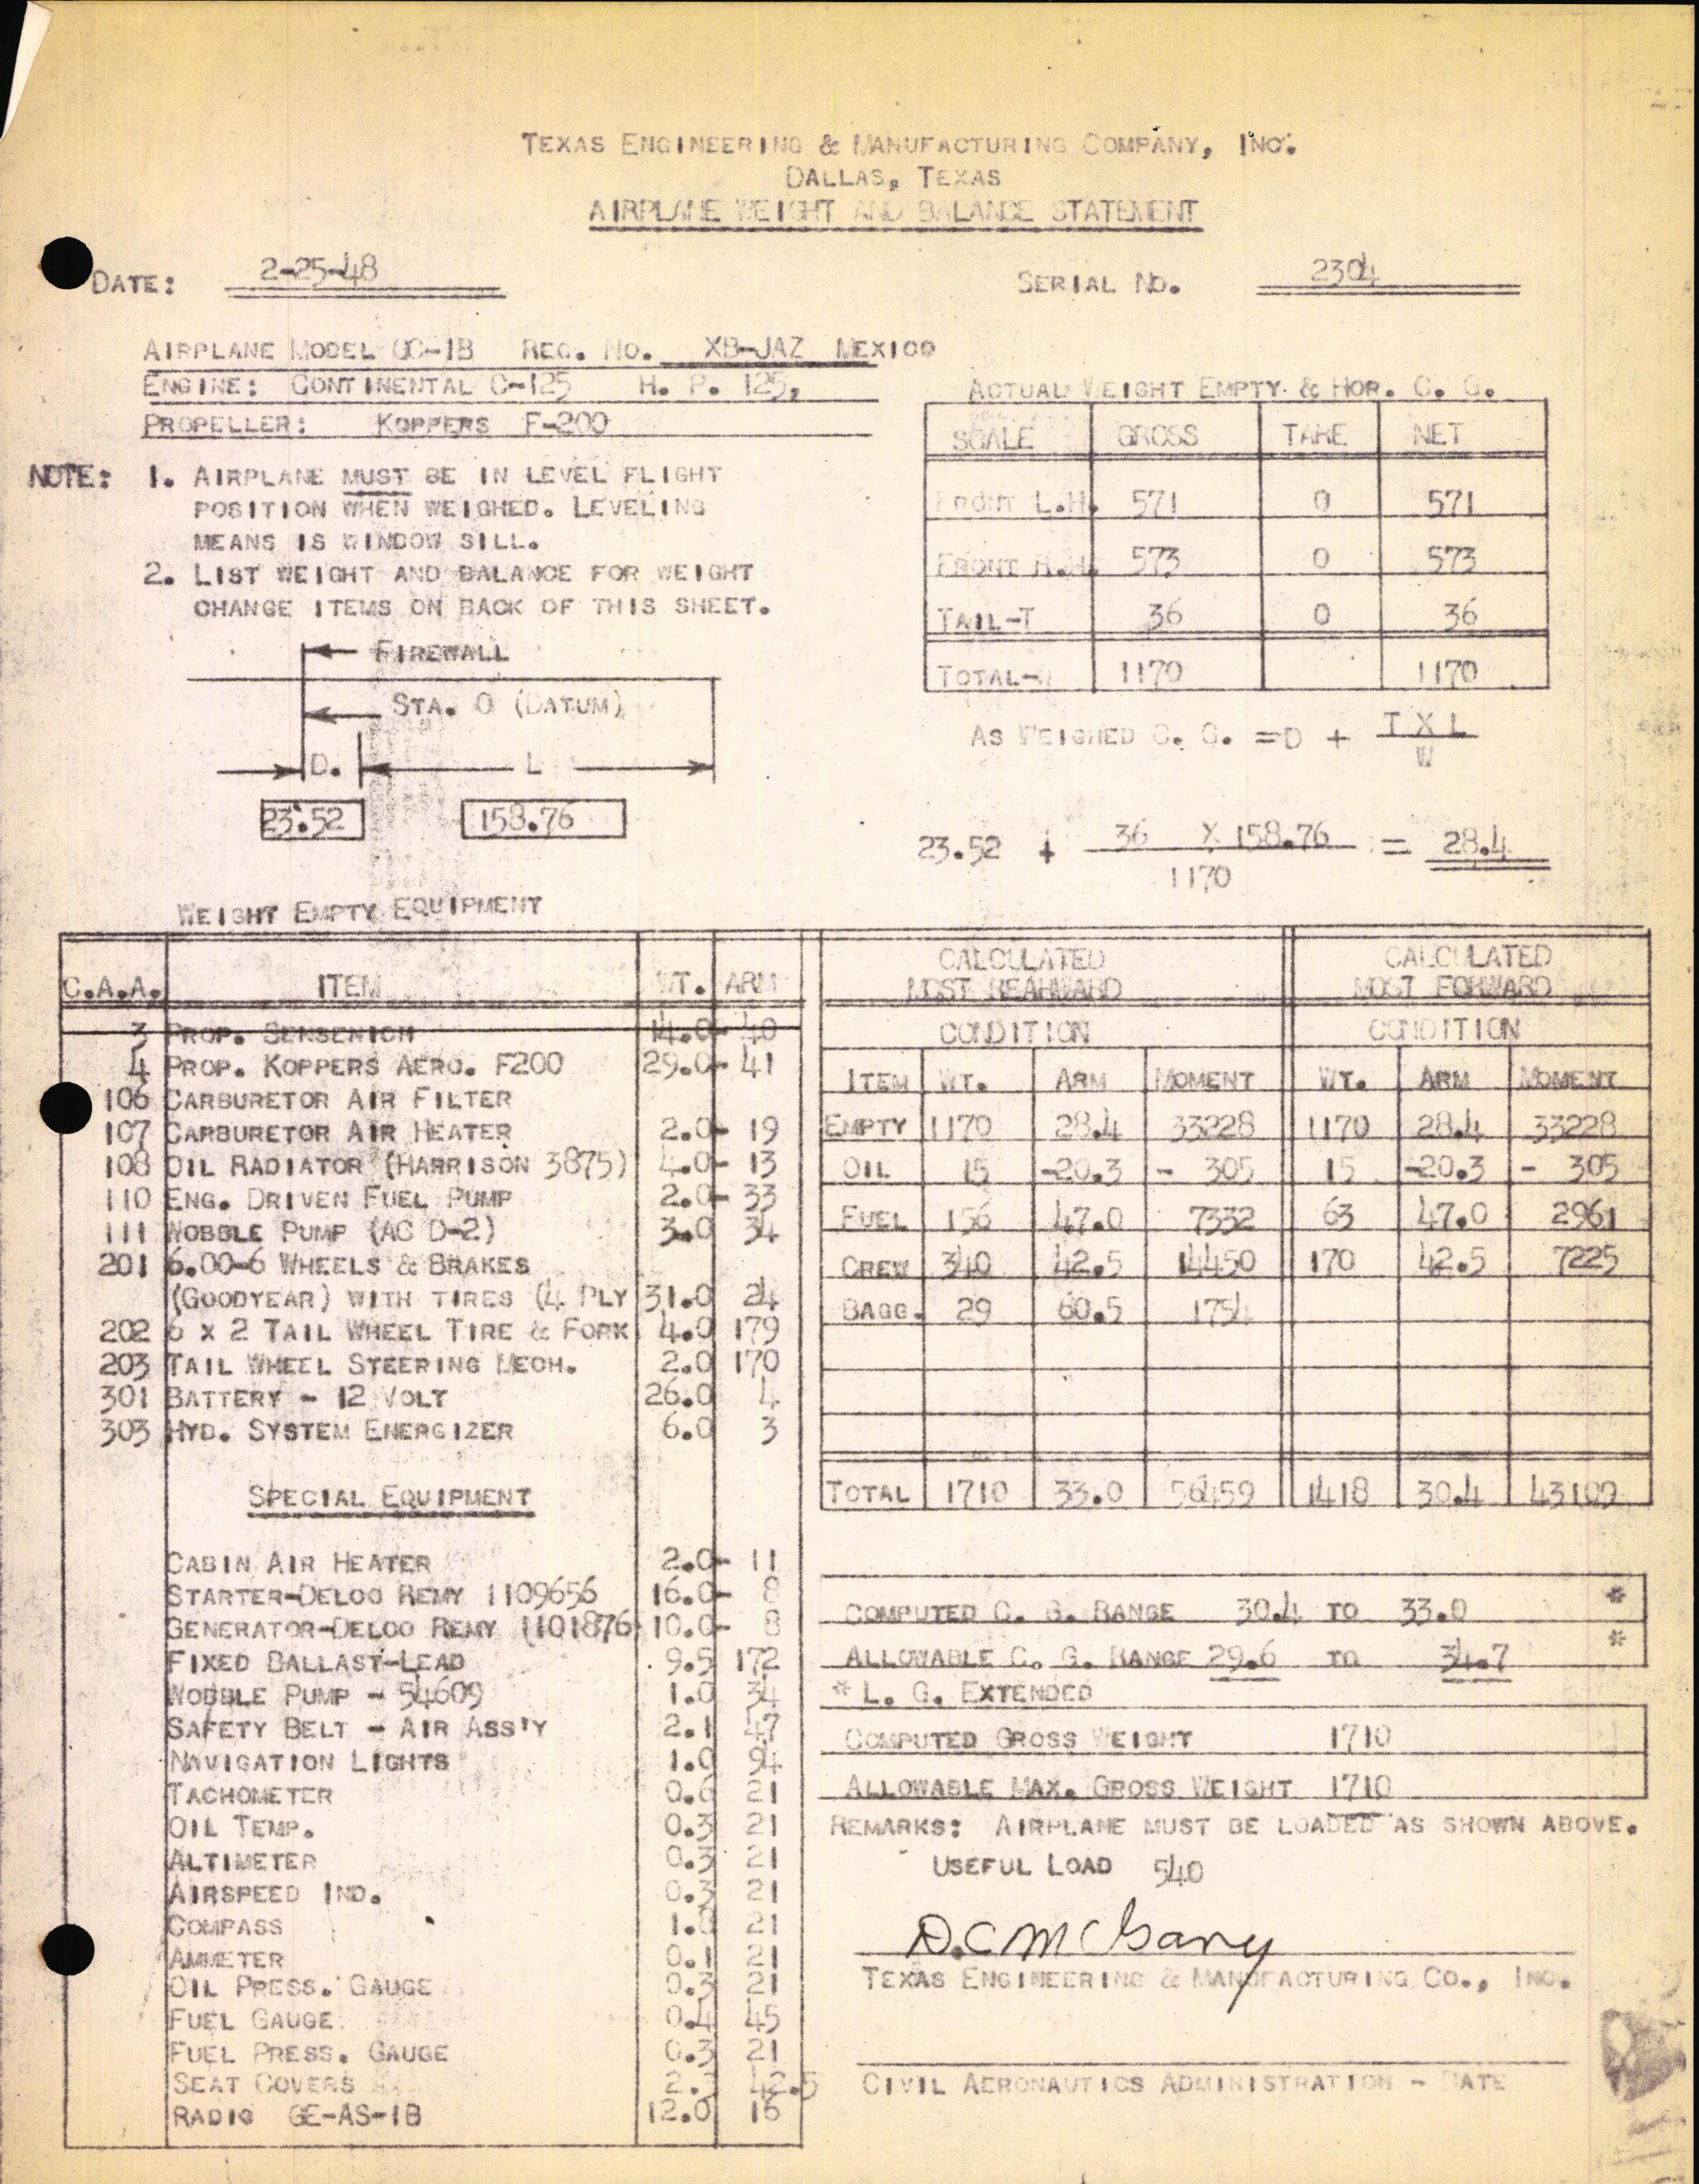 TEXAS ENGINEERING & MANUFACTURING COMPANY, INC.
DALLAS, TEXAS
AIRPLANE WEIGHT AND BALANCE STATEMENT
DATE: 2-25-48
SERIAL NO. 2304
AIRPLANE MODEL GC-1B REG. NO. XB-JAZ MEXICO
ENGINE: CONTINENTAL C-125 H. P. 125,
PROPELLER: KOPPERS F-200
NOTE: 1. AIRPLANE MUST BE IN LEVEL FLIGHT
POSITION WHEN WEIGHED. LEVELING
MEANS IS WINDOW SILL.
2. LIST WEIGHT AND BALANCE FOR WEIGHT
CHANGE ITEMS ON BACK OF THIS SHEET.
FIREWALL
STA. O (DATUM)
D. L
23.52 158.76
ACTUAL WEIGHT EMPTY & HOR. C. G.
SCALE GROSS TARE NET
FRONT L.H. 571 0 571
FRONT R.H. 573 0 573
TAIL-T 36 0 36
TOTAL-W 1170 1170
AS WEIGHED C. G. =D + T X L
W
23.52 + 36 X 158.76 = 28.4
1170
WEIGHT EMPTY EQUIPMENT
C.A.A. ITEM WT. ARM
3 PROP. SENSENICH 14.0- 40
4 PROP. KOPPERS AERO. F200 29.0- 41
106 CARBURETOR AIR FILTER
107 CARBURETOR AIR HEATER 2.0- 19
108 OIL RADIATOR (HARRISON 3875) 4.0- 13
110 ENG. DRIVEN FUEL PUMP 2.0- 33
111 WOBBLE PUMP (AC D-2) 3.0 34
201 6.00-6 WHEELS & BRAKES
(GOODYEAR) WITH TIRES (4 PLY 31.0 24
202 6 X 2 TAIL WHEEL TIRE & FORK 4.0 179
203 TAIL WHEEL STEERING MECH. 2.0 170
301 BATTERY - 12 VOLT 26.0 4
303 HYD. SYSTEM ENERGIZER 6.0 3
SPECIAL EQUIPMENT
CABIN AIR HEATER 2.0- 11
STARTER-DELCO REMY 1109656 16.0- 8
GENERATOR-DELCO REMY (1101876 10.0- 8
FIXED BALLAST-LEAD 9.5 172
WOBBLE PUMP - 54609 1.0 34
SAFETY BELT - AIR ASS'Y 2.1 47
NAVIGATION LIGHTS 1.0 94
TACHOMETER 21
OIL TEMP. 0.3 21
ALTIMETER 0.3 21
AIRSPEED IND. 0.3 21
COMPASS 21
AMMETER 0.1 21
OIL PRESS. GAUGE 0.3 21
FUEL GAUGE 0.4 45
FUEL PRESS. GAUGE 0.3 21
SEAT COVERS 42.5
RADIO GE-AS-1B 12.0
CALCULATED CALCULATED
MOST REARWARD MOST FORWARD
CONDITION CONDITION
ITEM WT. ARM MOMENT WT. ARM MOMENT
EMPTY 1170 28.4 33228 1170 28.4 33228
OIL 15 -20.3 - 305 15 -20.3 - 305
FUEL 156 47.0 7332 63 47.0 2961
CREW 340 42.5 14450 170 42.5 7225
BAGG. 29 60.5 1754
TOTAL 1710 33.0 56459 1418 30.4 43109
COMPUTED C. G. RANGE 30.4 TO 33.0 *
ALLOWABLE C. G. RANGE 29.6 TO 34.7 *
* L. G. EXTENDED
COMPUTED GROSS WEIGHT 1710
ALLOWABLE MAX. GROSS WEIGHT 1710
REMARKS: AIRPLANE MUST BE LOADED AS SHOWN ABOVE.
USEFUL LOAD 540
D.C. McGary
TEXAS ENGINEERING & MANUFACTURING CO., INC.
CIVIL AERONAUTICS ADMINISTRATION - DATE